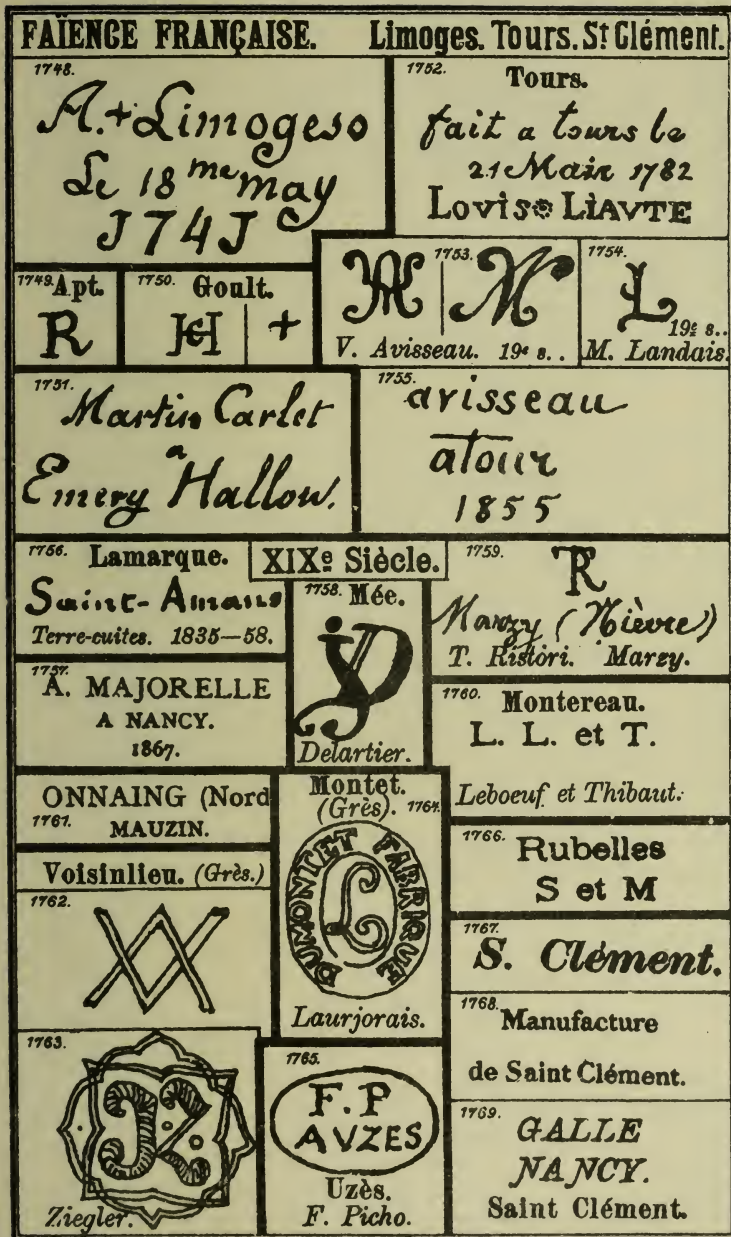 FAÏENCE FRANÇAISE. Limoges. Tours. St Clément.
1748.
A.+Limogeso
Le 18me may
J74J
1752.
Tours.
fait a tours le
21 Mair 1782
LOVIS LIAVTE
1749. Apt.
R
1750. Goult.
H +
1753.
V. Avisseau. 19e s..
1754.
L
19e s..
M. Landais.
1751.
Martin Carlet
a
Emery Hallow.
1755.
avisseau
atour
1855
1756. Lamarque.
Saint-Amans
Terre-cuites. 1835—58.
XIXe Siècle.
1757.
A. MAJORELLE
A NANCY.
1867.
1758. Mée.
Delartier.
1759.
TR
Marzy (Nièvre)
T. Ristori. Marzy.
1760. Montereau.
L. L. et T.
Leboeuf et Thibaut.
ONNAING (Nord
1761. MAUZIN.
Voisinlieu. (Grès.)
1762.
1763.
Ziegler.
Montet.
(Grès). 1764.
DUMONTET FABRIQUE
Laurjorais.
1765.
F. P
AVZES
Uzès.
F. Picho.
1766. Rubelles
S et M
1767.
S. Clément.
1768.
Manufacture
de Saint Clément.
1769.
GALLE
NANCY.
Saint Clément.